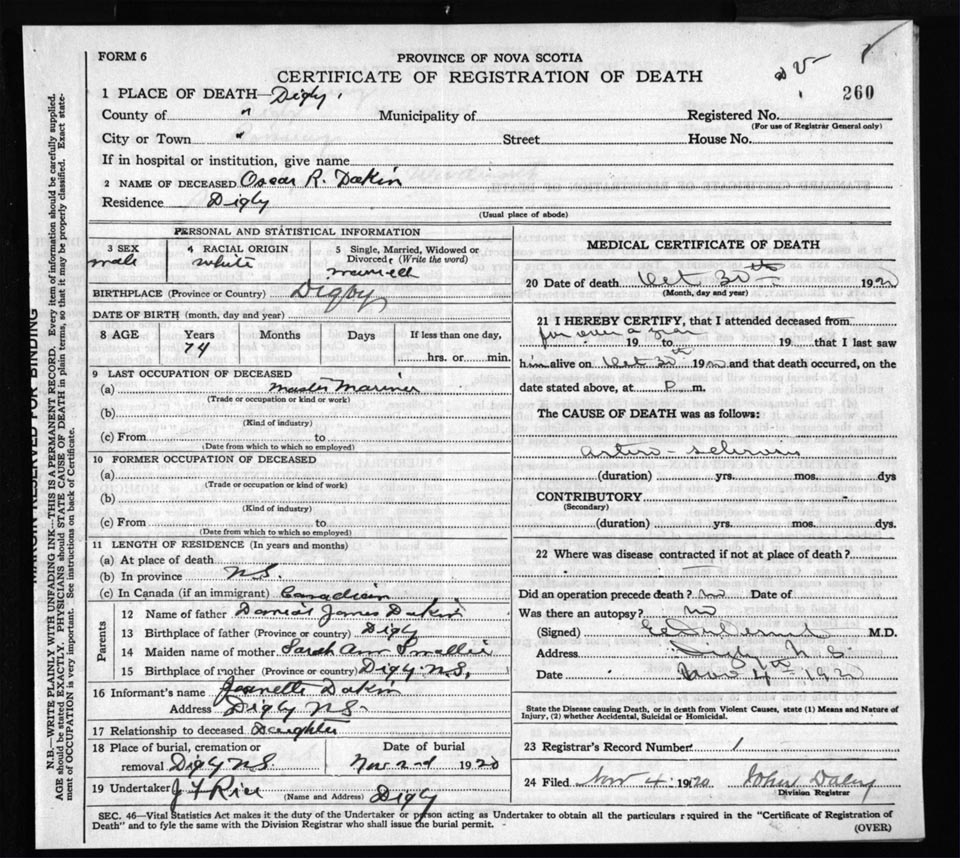 FORM 6
PROVINCE OF NOVA SCOTIA
CERTIFICATE OF REGISTRATION OF DEATH
260
1 PLACE OF DEATH—Digby
County of " Municipality of Registered No.
(For use of Registrar General only)
City or Town " Street House No.
If in hospital or institution, give name
2 NAME OF DECEASED Oscar R. Dakin
Residence Digby
(Usual place of abode)
PERSONAL AND STATISTICAL INFORMATION
3 SEX 4 RACIAL ORIGIN 5 Single, Married, Widowed or
Divorced (Write the word)
male white married
BIRTHPLACE (Province or Country) Digby
DATE OF BIRTH (month, day and year)
8 AGE Years Months Days If less than one day,
74 hrs. or min.
9 LAST OCCUPATION OF DECEASED
(a) Master Mariner
(Trade or occupation or kind or work)
(b)
(Kind of industry)
(c) From to
(Date from which to which so employed)
10 FORMER OCCUPATION OF DECEASED
(a)
(Trade or occupation or kind of work)
(b)
(Kind of industry)
(c) From to
(Date from which to which so employed)
11 LENGTH OF RESIDENCE (In years and months)
(a) At place of death
(b) In province N.S.
(c) In Canada (if an immigrant) Canadian
Parents
12 Name of father Daniel James Dakin
13 Birthplace of father (Province or country) Digby
14 Maiden name of mother Sarah Ann Smallie
15 Birthplace of mother (Province or country) Digby N.S.
16 Informant's name Jeanette Dakin
Address Digby N.S.
17 Relationship to deceased Daughter
18 Place of burial, cremation or Date of burial
removal Digby N.S. Nov 2nd 1920
19 Undertaker J F Rice Digby
(Name and Address)
MEDICAL CERTIFICATE OF DEATH
20 Date of death Oct 30th 1920
(Month, day and year)
21 I HEREBY CERTIFY, that I attended deceased from
for over a year 19 to 19 that I last saw
him alive on Oct 30th 1920 and that death occurred, on the
date stated above, at P m.
The CAUSE OF DEATH was as follows:
arterio-sclerosis
(duration) yrs. mos. dys
CONTRIBUTORY
(Secondary)
(duration) yrs. mos. dys.
22 Where was disease contracted if not at place of death?
Did an operation precede death? no Date of
Was there an autopsy? no
(Signed) M.D.
Address Digby N.S.
Date Nov 4th 1920
State the Disease causing Death, or in death from Violent Causes, state (1) Means and Nature of
Injury, (2) whether Accidental, Suicidal or Homicidal.
23 Registrar's Record Number 1
24 Filed Nov 4 1920 John Daley
Division Registrar
SEC. 46—Vital Statistics Act makes it the duty of the Undertaker or person acting as Undertaker to obtain all the particulars required in the "Certificate of Registration of
Death" and to fyle the same with the Division Registrar who shall issue the burial permit.
(OVER)
MARGIN RESERVED FOR BINDING
N.B.—WRITE PLAINLY WITH UNFADING INK—THIS IS A PERMANENT RECORD. Every item of information should be carefully supplied.
AGE should be stated EXACTLY. PHYSICIANS should STATE CAUSE OF DEATH in plain terms, so that it may be properly classified. Exact state-
ment of OCCUPATION is very important. See instructions on back of Certificate.